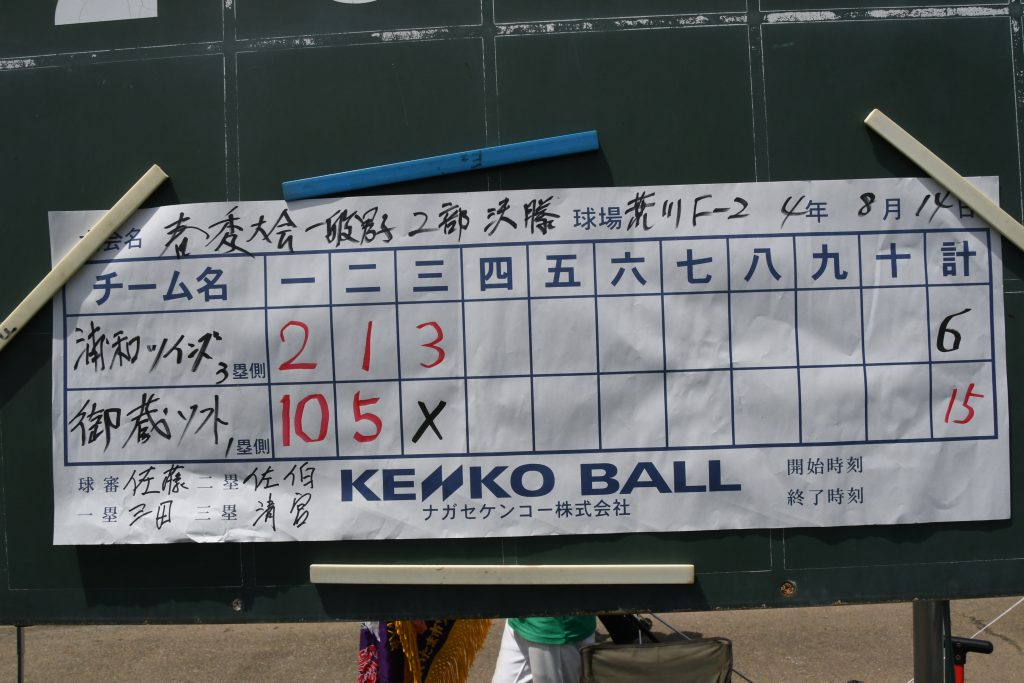 会名 春季大会一般男子2部決勝 球場 荒川F-2 4年 8月14日
チーム名 一 二 三 四 五 六 七 八 九 十 計
浦和ツインズ 3塁側 2 1 3 6
御蔵ソフト 1塁側 10 5 X 15
球審 佐藤 二塁 佐伯
一塁 三田 三塁 清宮
KENKO BALL
ナガセケンコー株式会社
開始時刻
終了時刻